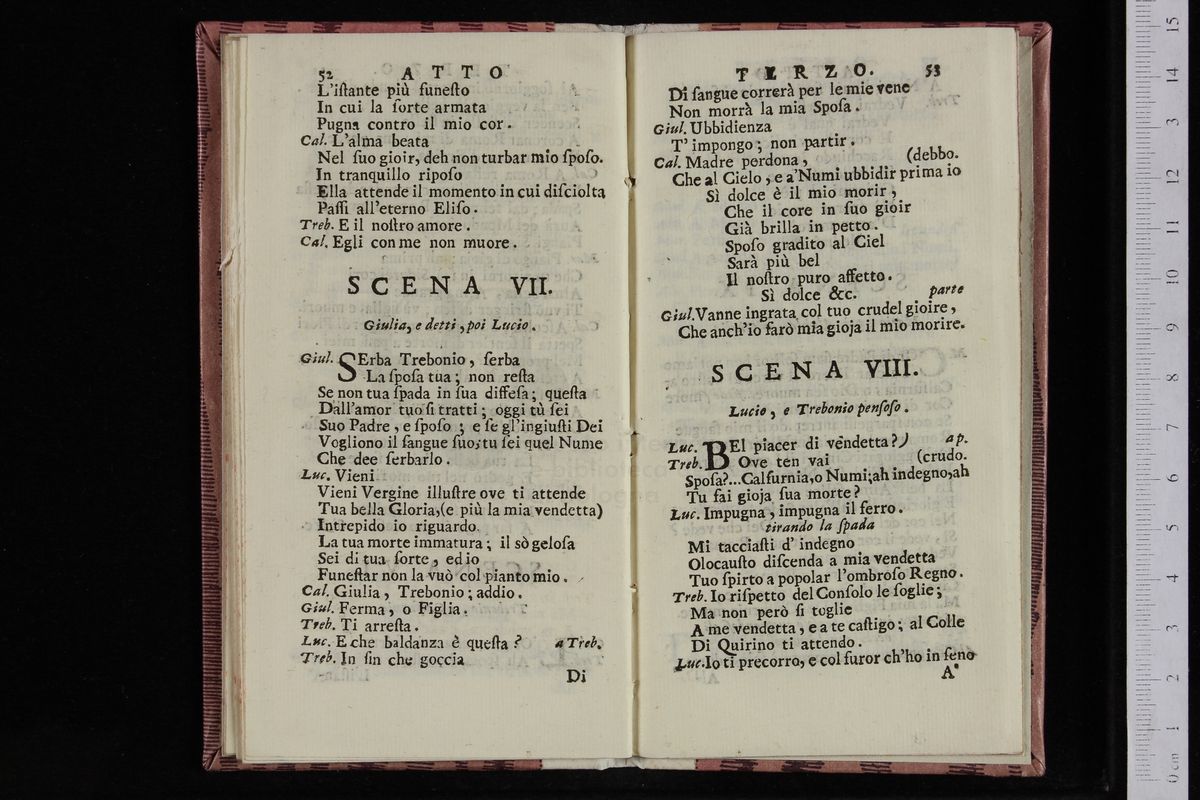 52 ATTO
L'iſtante più funeſto
In cui la ſorte armata
Pugna contro il mio cor.
Cal. L'alma beata
Nel ſuo gioir, deh non turbar mio ſpoſo.
In tranquillo ripoſo
Ella attende il momento in cui diſciolta
Paſſi all'eterno Eliſo.
Treb. E il noſtro amore.
Cal. Egli con me non muore.
SCENA VII.
Giulia, e detti, poi Lucio.
Giul. SErba Trebonio, ſerba
La ſpoſa tua; non reſta
Se non tua ſpada in ſua diffeſa; queſta
Dall'amor tuo ſi tratti; oggi tù ſei
Suo Padre, e ſpoſo; e ſe gl'ingiuſti Dei
Vogliono il ſangue ſuo; tu ſei quel Nume
Che dee ſerbarlo.
Luc. Vieni
Vieni Vergine illuſtre ove ti attende
Tua bella Gloria, (e più la mia vendetta)
Intrepido io riguardo
La tua morte immatura; il sò geloſa
Sei di tua ſorte, ed io
Funeſtar non la vuò col pianto mio.
Cal. Giulia, Trebonio; addio.
Giul. Ferma, o Figlia.
Treb. Ti arreſta.
Luc. E che baldanza è queſta? a Treb.
Treb. In ſin che goccia
Di
TERZO. 53
Di ſangue correrà per le mie vene
Non morrà la mia Spoſa.
Giul. Ubbidienza
T'impongo; non partir.
Cal. Madre perdona, (debbo.
Che al Cielo, e a'Numi ubbidir prima io
Sì dolce è il mio morir,
Che il core in ſuo gioir
Già brilla in petto.
Spoſo gradito al Ciel
Sarà più bel
Il noſtro puro affetto.
Sì dolce &c. parte
Giul. Vanne ingrata col tuo crudel gioire,
Che anch'io farò mia gioja il mio morire.
SCENA VIII.
Lucio, e Trebonio penſoſo.
Luc. BEl piacer di vendetta?) ap.
Treb. Ove ten vai (crudo.
Spoſa?...Calfurnia, o Numi; ah indegno, ah
Tu fai gioja ſua morte?
Luc. Impugna, impugna il ferro.
tirando la ſpada
Mi tacciaſti d' indegno
Olocauſto diſcenda a mia vendetta
Tuo ſpirto a popolar l'ombroſo Regno.
Treb. Io riſpetto del Conſolo le ſoglie;
Ma non però ſi toglie
A me vendetta, e a te caſtigo; al Colle
Di Quirino ti attendo.
Luc. Io ti precorro, e col furor ch'ho in ſeno
A
0 cm 1 2 3 4 5 6 7 8 9 10 11 12 13 14 15